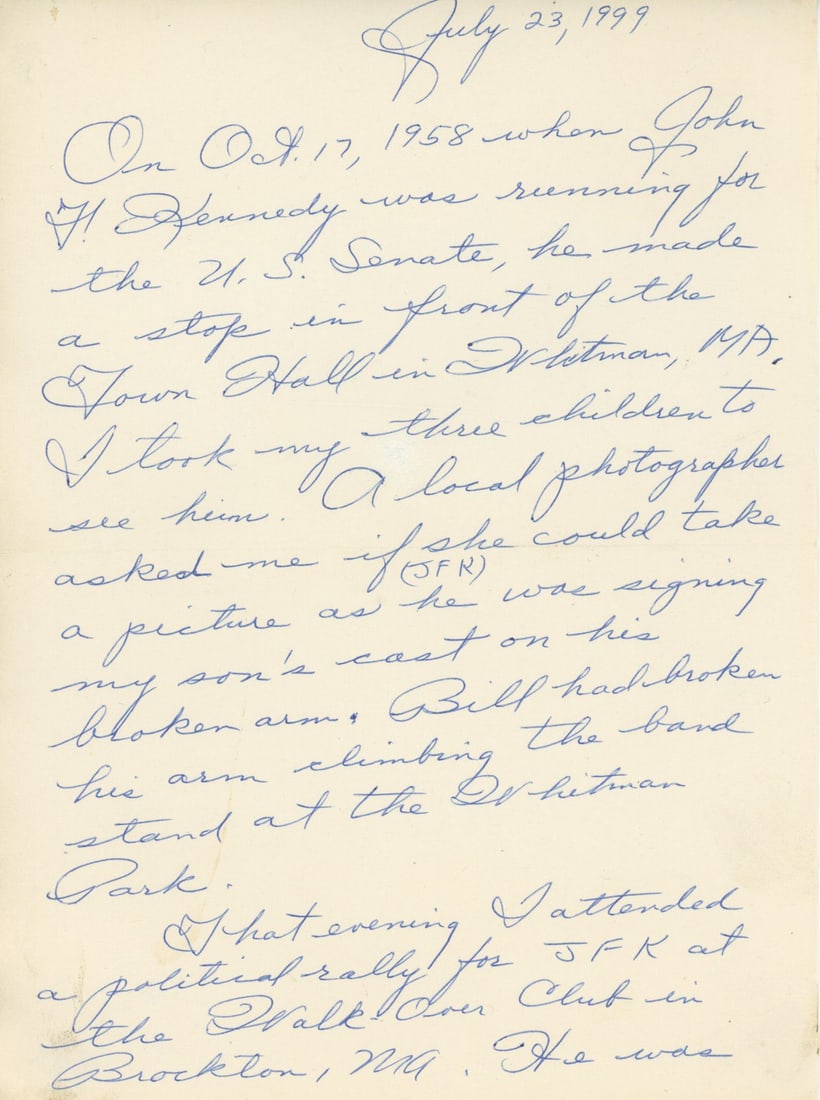 July 23, 1999
On Oct. 17, 1958 when John
F. Kennedy was running for
the U. S. Senate, he made
a stop in front of the
Town Hall in Whitman, MA.
I took my three children to
see him. A local photographer
asked me if she could take
(JFK)
a picture as he was signing
my son's cast on his
broken arm. Bill had broken
his arm climbing the band
stand at the Whitman
Park.
That evening I attended
a political rally for JFK at
the Walk-Over Club in
Brockton, MA. He was